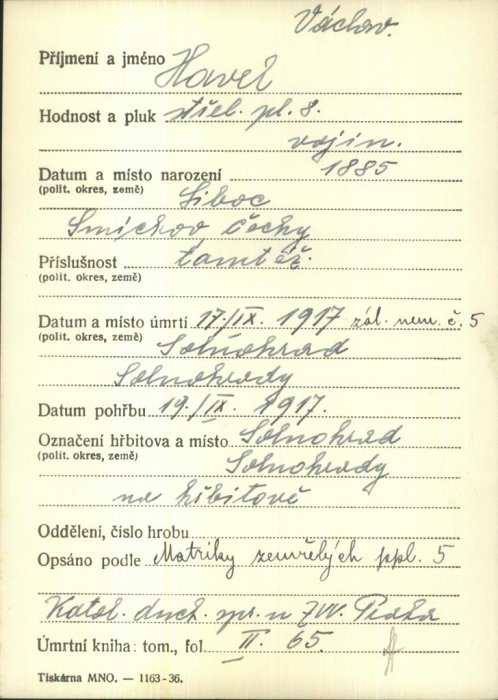 Václav.
Příjmení a jméno Havel
Hodnost a pluk střel. pl. 8.
vojín.
Datum a místo narození 1885
(polit. okres, země) Liboc
Smíchov Čechy
Příslušnost tamtéž.
(polit. okres, země)
Datum a místo úmrtí 17./IX. 1917 zál. nem. č. 5
(polit. okres, země) Solnohrad
Solnohrady
Datum pohřbu 19./IX. 1917.
Označení hřbitova a místo Solnohrad
(polit. okres, země) Solnohrady
na hřbitově
Oddělení, číslo hrobu
Opsáno podle Matriky zemřelých ppl. 5
Katol. duch. spr. u ZVV. Praha
Úmrtní kniha: tom., fol. II. 65.
Tiskárna MNO. — 1163-36.